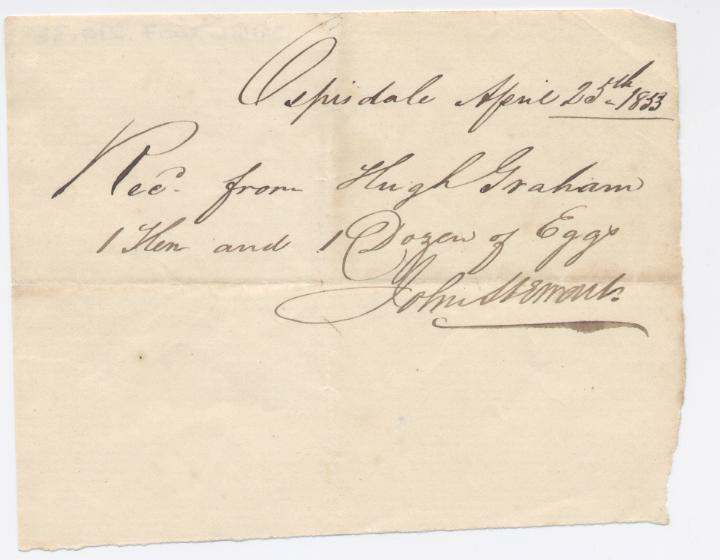 Ospisdale April 25th 1853
Recd. from Hugh Graham
1 Hen and 1 Dozen of Eggs
John Stewart